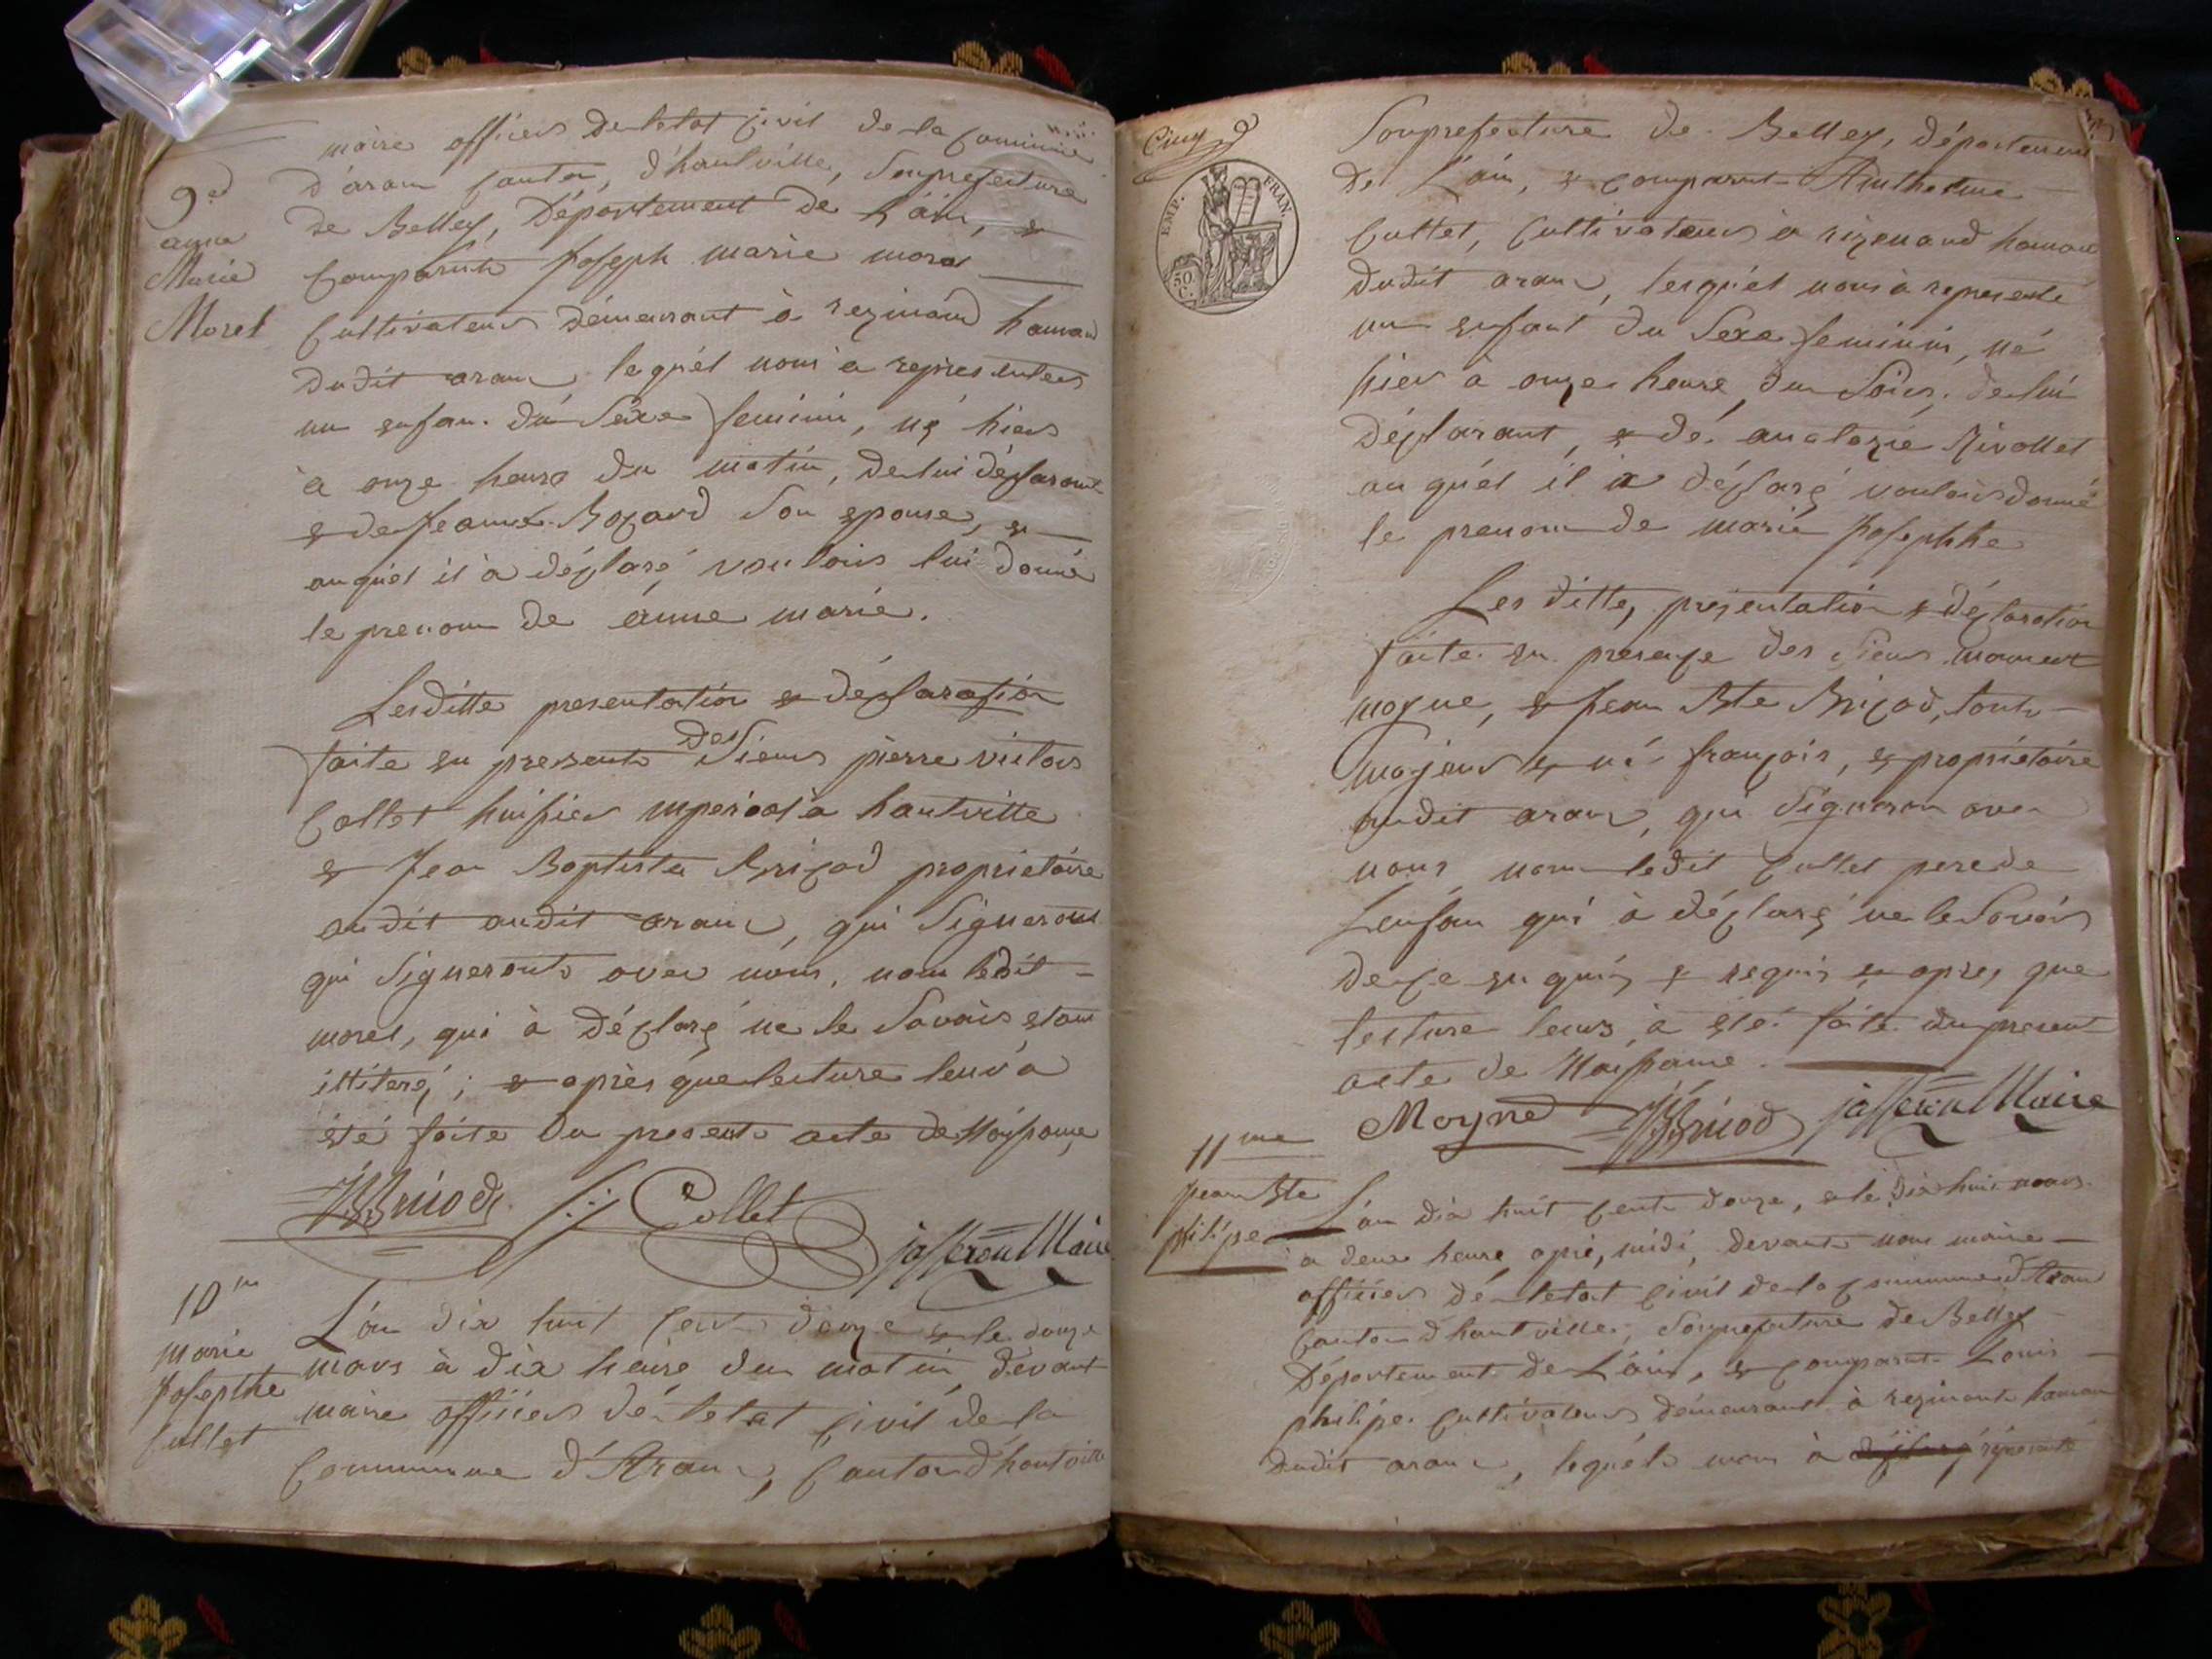 maire officiers de letat civil de la commune
d'aran canton, d'hauteville, Souprefecture
de Belley, Département de L'ain, &
Comparut Joseph marie morel
Cultivateurs demeurant à reginand hamau
dudit aran, lequél nous a representers
un enfan. du Séxe feminin, né hiers
à onze heure du matin, de lui déclarant
& de jeanne Bozard son epouse,
auquél il à déclaré vouloir lui donné
le prenom de anne marie.
9.e
anne
Marie
Morel
Lesditte presentation & déclaration
faite en presente des Sieurs pierre victor
Collet huissier imperial a hauteville
& Jean Baptiste Brigod propriétaire
audit audit aran, qui Signerons
qui Signeronts avec nous, nom ledit
morel, qui à déclaré ne le Savoir etan
illiteré; & après que lecture leur a
été faite du present acte de Naissance
JBBrigod Collet
jasseron Maire
10.me
marie
Josephte
Cullet
L'an dix huit cent douze & le douze
mars à dix heure du matin, devant
maire officiers dé letat civil de la
Commune d'Aran, canton d'hauteville
Cinq
EMP. FRAN.
50 C.
Souprefecture de Belley, département
De L'ain, & comparut Anthelme
Cullet, Cultivateur à rigenand hamau
dudit aran, lesquél nous à represente
un enfant du Sexe feminin, né
hier à onze heure du Soir, de lui
déclarant, & dé. anatazie Rivollet
auquél il a déclaré vouloir donné
le prenom de marie Josephte
Les ditte, presentation & déclaration
faite en presence des Sieur
moyne, & jean Bte Brigod, touts
majeur & né françois, & propriétaire
audit aran, qui Signeron avec
nous nom ledit Cullet pere de
Lenfan qui à déclaré ne le Savoir
de ce enquis & requis & apres que
lecture leurs à été faite du present
acte de Naissance.
Moyne JBBrigod jasseron Maire
11me
jean Bte
philipe
L'an dix huit cent douze, & le dix huit mars
a deux heure, apré, midi, devant nous maire
officiers dé letat civil de la commune d'Aran
Canton d'hauteville, Souprefecture de Belley
Département de L'ain, & comparut Louis
philipe Cultivateur demeurant à reginant hamau
dudit aran, lequél nous à représenté